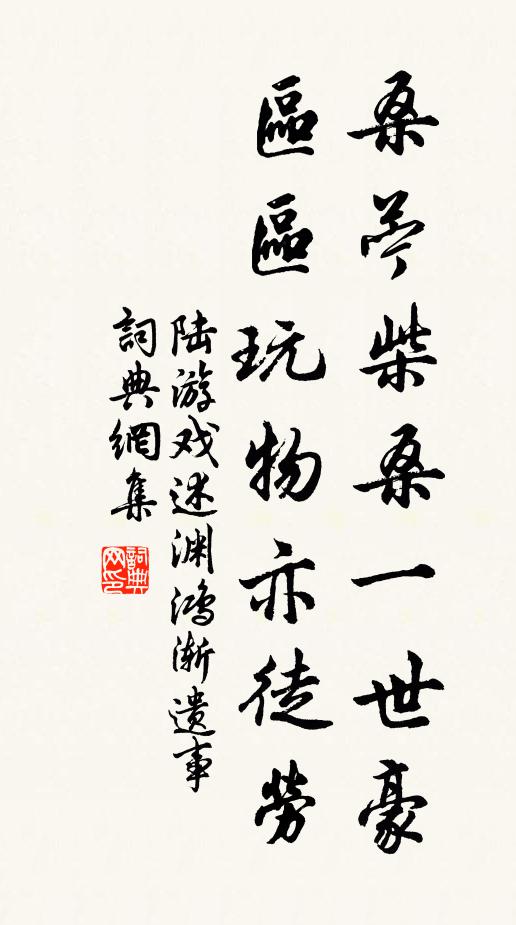 桑苧柴桑一世豪
區區玩物亦徒勞
陆游戏述渊鸿渐遗事
詞典網集
詞典网印